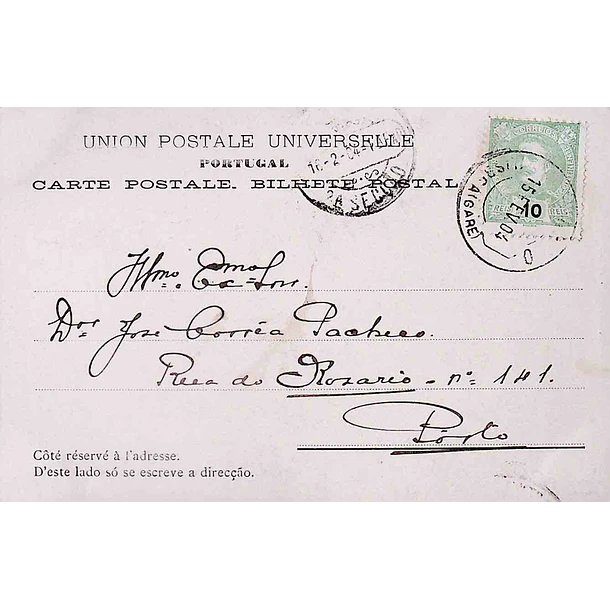 UNION POSTALE UNIVERSELLE
PORTUGAL
CARTE POSTALE. BILHETE POSTAL
16-2-04
2A SECÇÃO
CORREIOS
10
REIS
15 FEV 04
(ALGARE)
Illmo. Exmo. Snr.
Dor José Corrêa Pacheco
Rua do Rosario - nº 141.
Pôrto
Côté réservé à l'adresse.
D'este lado só se escreve a direcção.